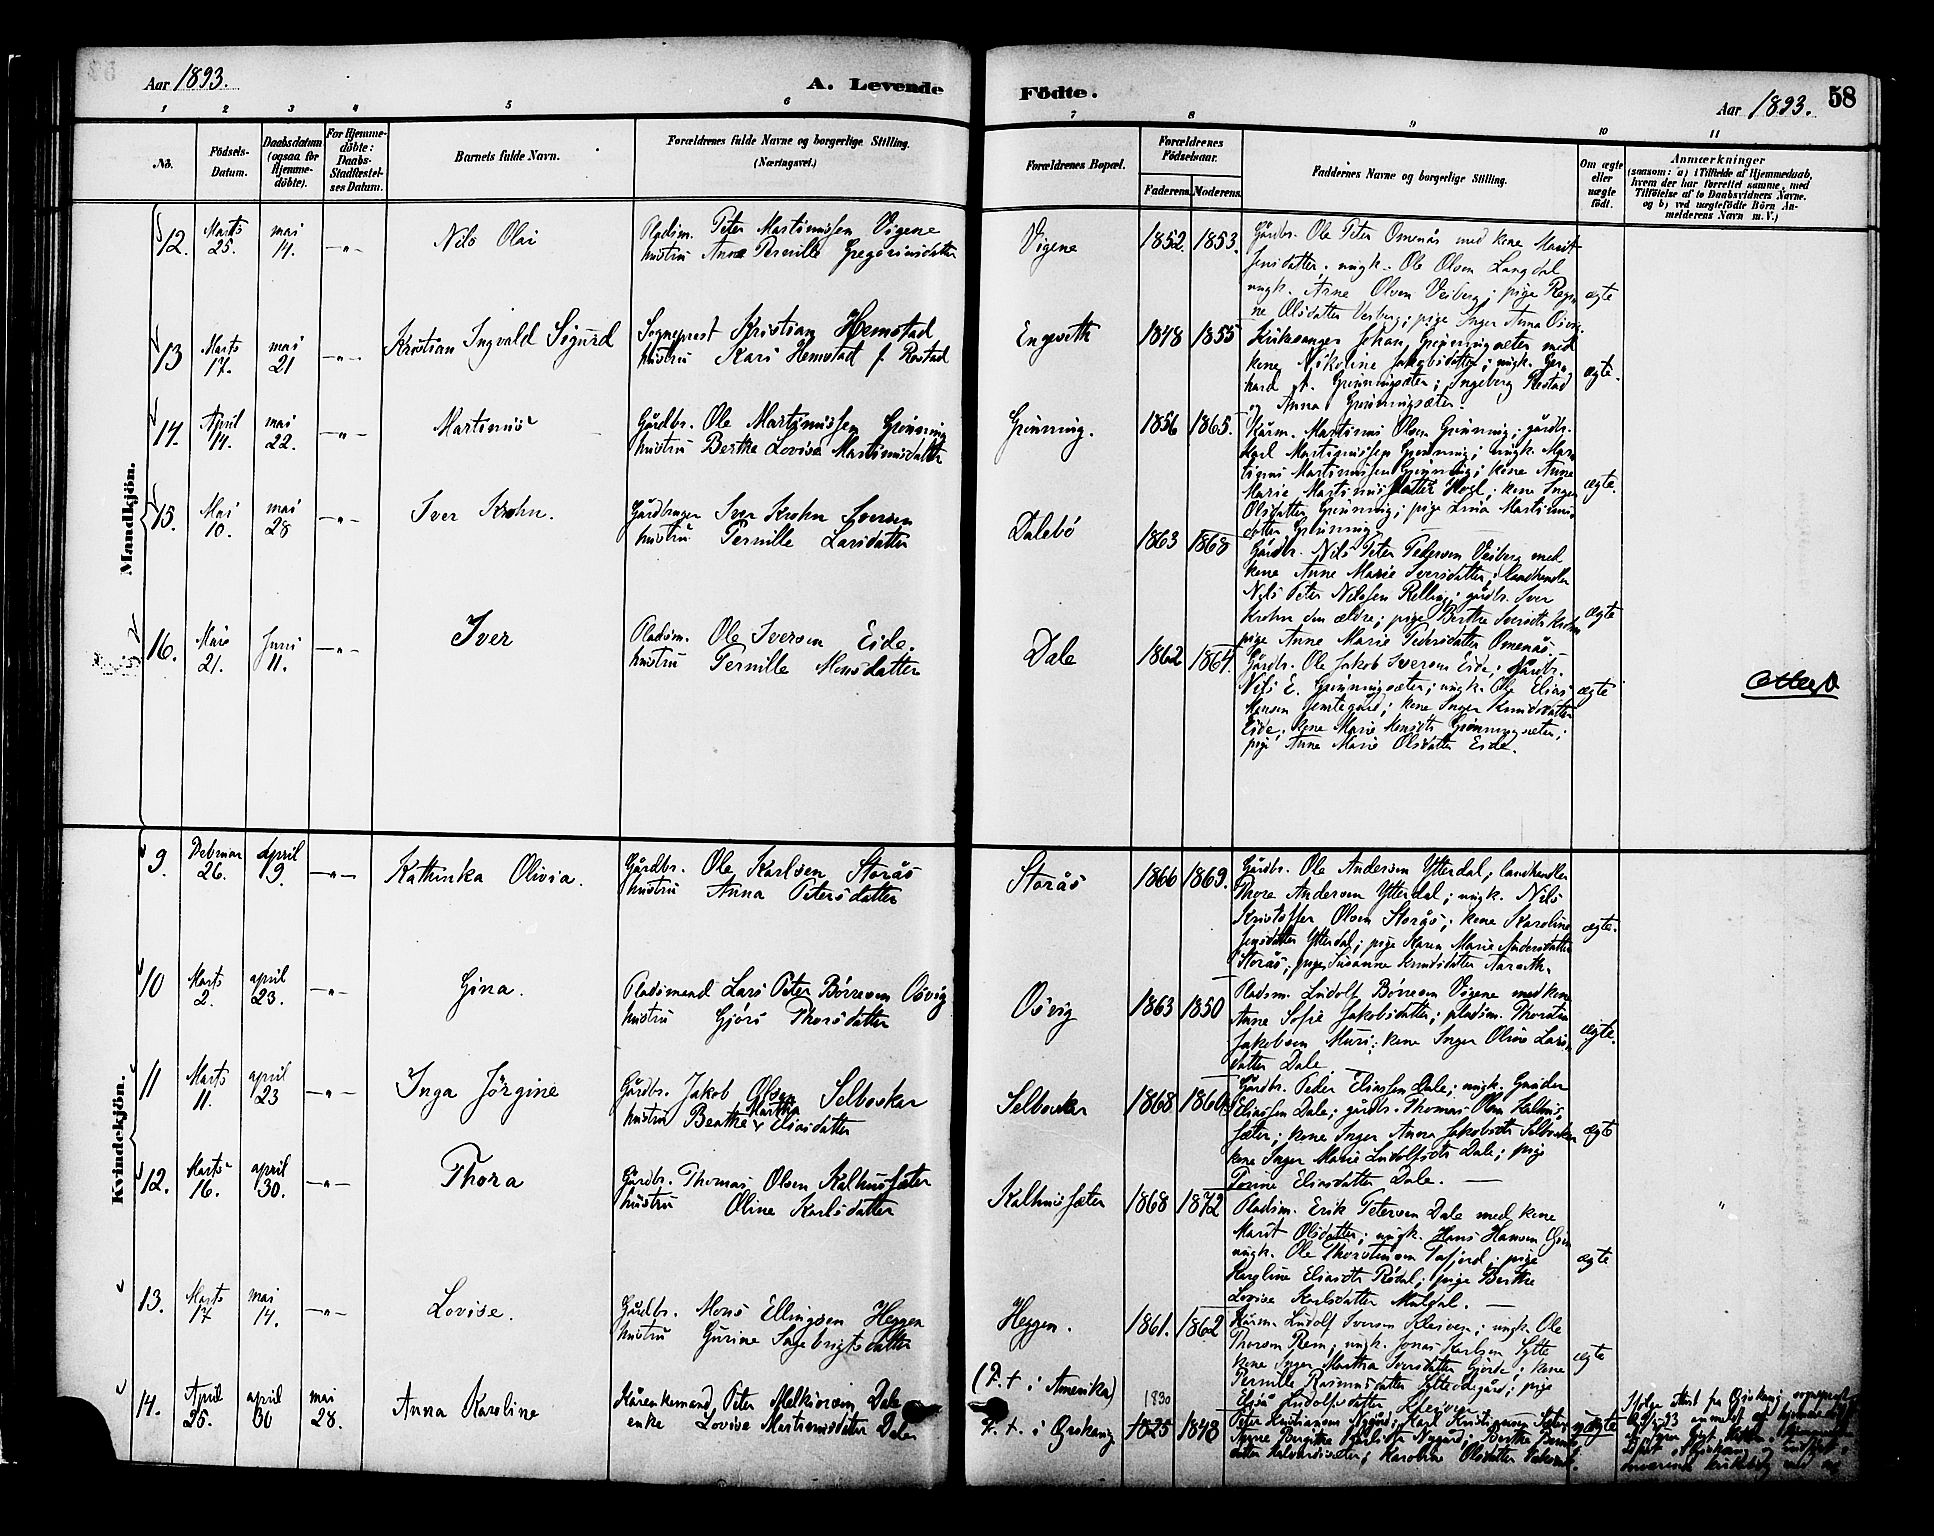 Aar 1893.
A. Levende
Födte.
Aar 1893.
58
1 2 3 4 5 6 7 8 9 10 11
No.
Födsels-Datum.
Daabsdatum (ogsaa för Hjemme-döbte).
For Hjemme-döbte: Daabs-Stadfæstel-ses Datum.
Barnets fulde Navn.
Forældrenes fulde Navne og borgerlige Stilling.
(Næringsvei.)
Forældrenes Bopæl.
Forældrenes Födselsaar.
Faderens. Moderens.
Faddernes Navne og borgerlige Stilling.
Om ægte eller uægte födt.
Anmærkninger
(saasom: a) i Tilfælde af Hjemmedaab, hvem der har forrettet samme, med Tilföielse af to Daabsvidners Navne. og b) ved uægtefödte Börn Anmelderens Navn m. V.)
Mandkjön.
12. Marts 25. mai 14. —„— Nils Olai
Pladsm. Peter Martinussen Vigene
hustru Anne Pernille Gregoriusdatter
Vigene 1852. 1853.
Gårdbr. Ole Peter Omenås med kone Marit
Jensdatter; ungk. Ole Olsen Langdal
ungk. Arne Olsen Veiberg; pige Regi-
ne Olsdatter Veiberg; pige Inger Anna
ægte
13 Marts 17. mai 21 —„— Kristian Ingvald Sigurd
Sogneprest Kristian Hemstad
hustru Kari Hemstad f. Rostad
Engeseth 1848 1855
Kirkesanger Johan Grønningsæter med
kone Nikoline Jakobsdatter; ungk. Ger-
hard A. Grønningsæter; Ingeborg Rostad
og Anna Grønningsæter.
ægte.
14. April 14. mai 22. —„— Martinus
Gårdbr. Ole Martinussen Grønning
hustru Berthe Lovise Martinusdatter
Grønning. 1856 1865.
Kårm. Martinus Olsen Grønning; gårdbr.
Karl Martinussen Grønning; ungk. Mar-
tinus Martinussen Grønning; kone Anne
Marie Martinusdatter; kone Inger
Olsdatter Grønning; pige Lina Martinus-
datter Grønning
ægte.
15. Mai 10. mai 28 —„— Iver Krohn.
Gårdbruger Iver Krohn Iversen
hustru Pernille Larsdatter
Dalebø 1863 1868
Gårdbr. Nils Peter Pedersen Veiberg med
kone Anne Marie Iversdatter; landhandler
Nils Peter Nilssen Relling; gårdbr. Iver
Krohn den ældre; pige Berthe Iversdtr Krohn
pige Anne Marie Pedersdatter Omenås.
ægte
16. Mai 21. Juni 11. —„— Iver
Pladsm. Ole Iversen Eide.
hustru Pernille Monsdatter
Dale 1862 1864.
Gårdbr. Ole Jakob Iversen Eide; gårdbr.
Nils E. Grønningsæter; ungk. Ole Elias
Hansen; kone Inger Knudsdatter
Eide; kone Marie Monsdtr Grønningsæter;
pige Anne Marie Olsdatter Eide.
ægte
Attest
Kvindekjön.
9. Februar 26. April 9. —„— Kathinka Olivia.
Gårdbr. Ole Karlsen Storås
hustru Anna Petersdatter
Storås 1866 1869.
Gårdbr. Ole Andersen Ytterdal; landhandler
Thore Andersen Ytterdal; ungk. Nils
Kristoffer Olsen Storås; kone Karoline
Jensdatter Ytterdal; pige Karen Marie Andersdatter
Storås; pige Susanne Knudsdatter
ægte.
10 Marts 2. april 23. —„— Gina.
Pladsmand Lars Peter Børresen Osvig
hustru Gjøri Thorsdatter
Osvig 1863 1850
Pladsm. Ludolf Børresen Vigene med kone
Anne Sofie Jakobsdatter; pladsm. Thorstein
Jakobsen Muri; kone Inger Oline Lars-
datter Dale
ægte.
11 Marts 11. april 23 —„— Inga Jørgine
Gårdbr. Jakob Olsen Selboskar
Martha
hustru Berthe v Eliasdatter
Selboskar 1868 1860
Gårdbr. Peder Eliassen Dale; ungk.
Eliassen Dale; gårdbr. Thomas Olsen Kalhus-
sæter; kone Inger Anna Jakobsdtr Selboskar
kone Inger Marie Ludolfsdtr Dale; pige
Torine Eliasdatter Dale. —
ægte
12. Marts 16. april 30. —„— Thora
Gårdbr. Thomas Olsen Kalhussæter
hustru Oline Karlsdatter
Kalhussæter 1868 1872
Pladsm. Erik Petersen Dale med kone
Marit Olsdatter; ungk. Hans Hansen
ungk. Ole Thorsteinsen Tafjord; pige
Karoline Eliasdtr Rødal; pige Berthe
Lovise Karlsdatter Muldal. —
ægte
„
13. Marts 17 mai 14. —„— Lovise.
Gårdbr. Mons Ellingsen Heggen
hustru Gurine Ingebrigtsdatter
Heggen. 1861. 1862
Kårm. Ludolf Iversen Kleiven; ungk. Ole
Thorsen Rem; ungk. Jonas Karlsen Sylte
kone Inger Martha Iversdatter Gjerde; kone
Pernille Rasmusdatter; pige
Elisa Ludolfsdatter Kleiven
ægte
14. April 25. april 30 mai 28. Anna Karoline
Kårenkemand Peter Melkiorsen Dale
enke Lovise Martinusdatter Dale
(F. † i Amerika)
F. †. i Ørskoug
1830
1825 1848
Peter Kristiansen Nygård; Karl Kristiansen
Anne Birgitte Nygård; Berthe
Karoline Olsdatter
uægte
Ifølge attest fra Ørskoug sogneprest